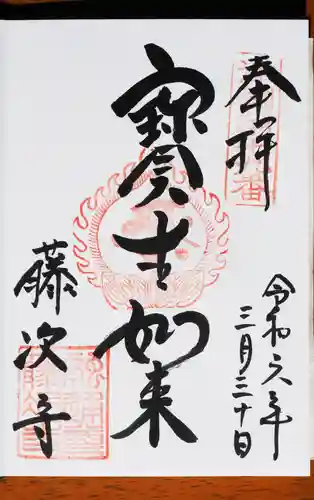 奉拝
令和六年
三月三十日
寶生如来
藤次寺